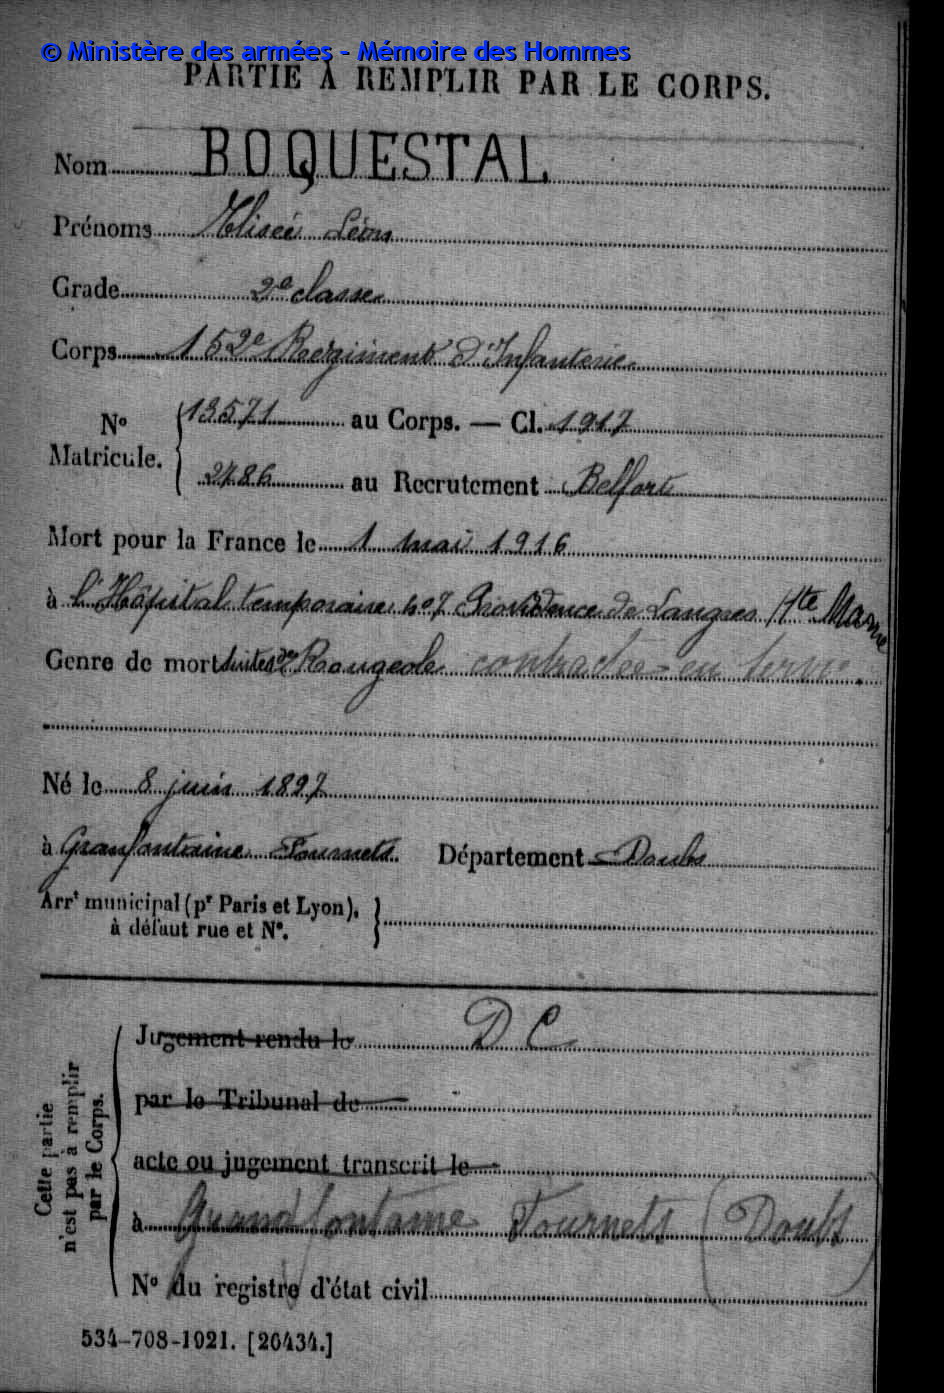 © Ministère des armées - Mémoire des Hommes
PARTIE A REMPLIR PAR LE CORPS.
Nom BOQUESTAL
Prénoms Elisée Léon
Grade 2e classe
Corps 152e Régiment d'Infanterie
No Matricule. { 13571 au Corps. — Cl. 1917
2786 au Recrutement Belfort
Mort pour la France le 1 mai 1916
à l'Hôpital temporaire no 7 Providence de Langres Hte Marne
Genre de mort suites de Rougeole contractée en serv.
Né le 8 juin 1897
à Granfontaine Fournets Département Doubs
Arrt municipal (pr Paris et Lyon),
à défaut rue et No.
Cette partie n'est pas à remplir par le Corps.
Jugement rendu le D C
par le Tribunal de
acte ou jugement transcrit le
à Grand'fontaine Fournets (Doubs)
No du registre d'état civil
534-708-1921. [26434.]